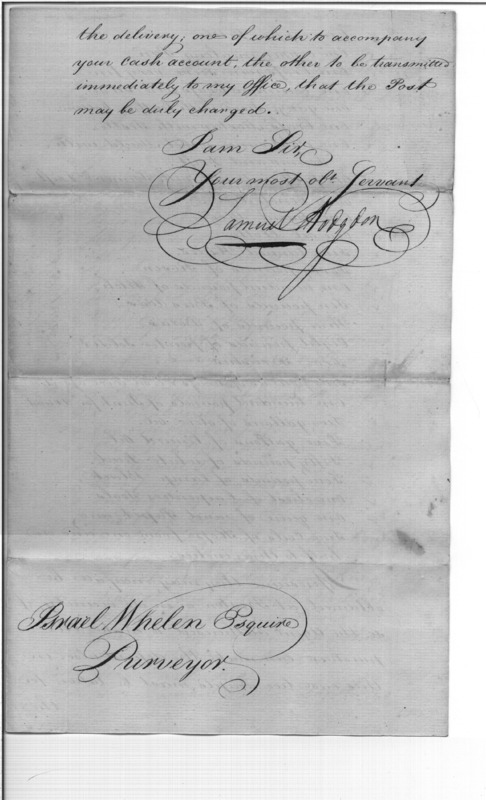 the delivery; one of which to accompany
your Cash account, the other to be transmitted
immediately to my Office, that the Post
may be duly charged.
I am Sir,
Your most obt. Servant
Samuel Hodgdon
Israel Whelen Esquire
Purveyor.